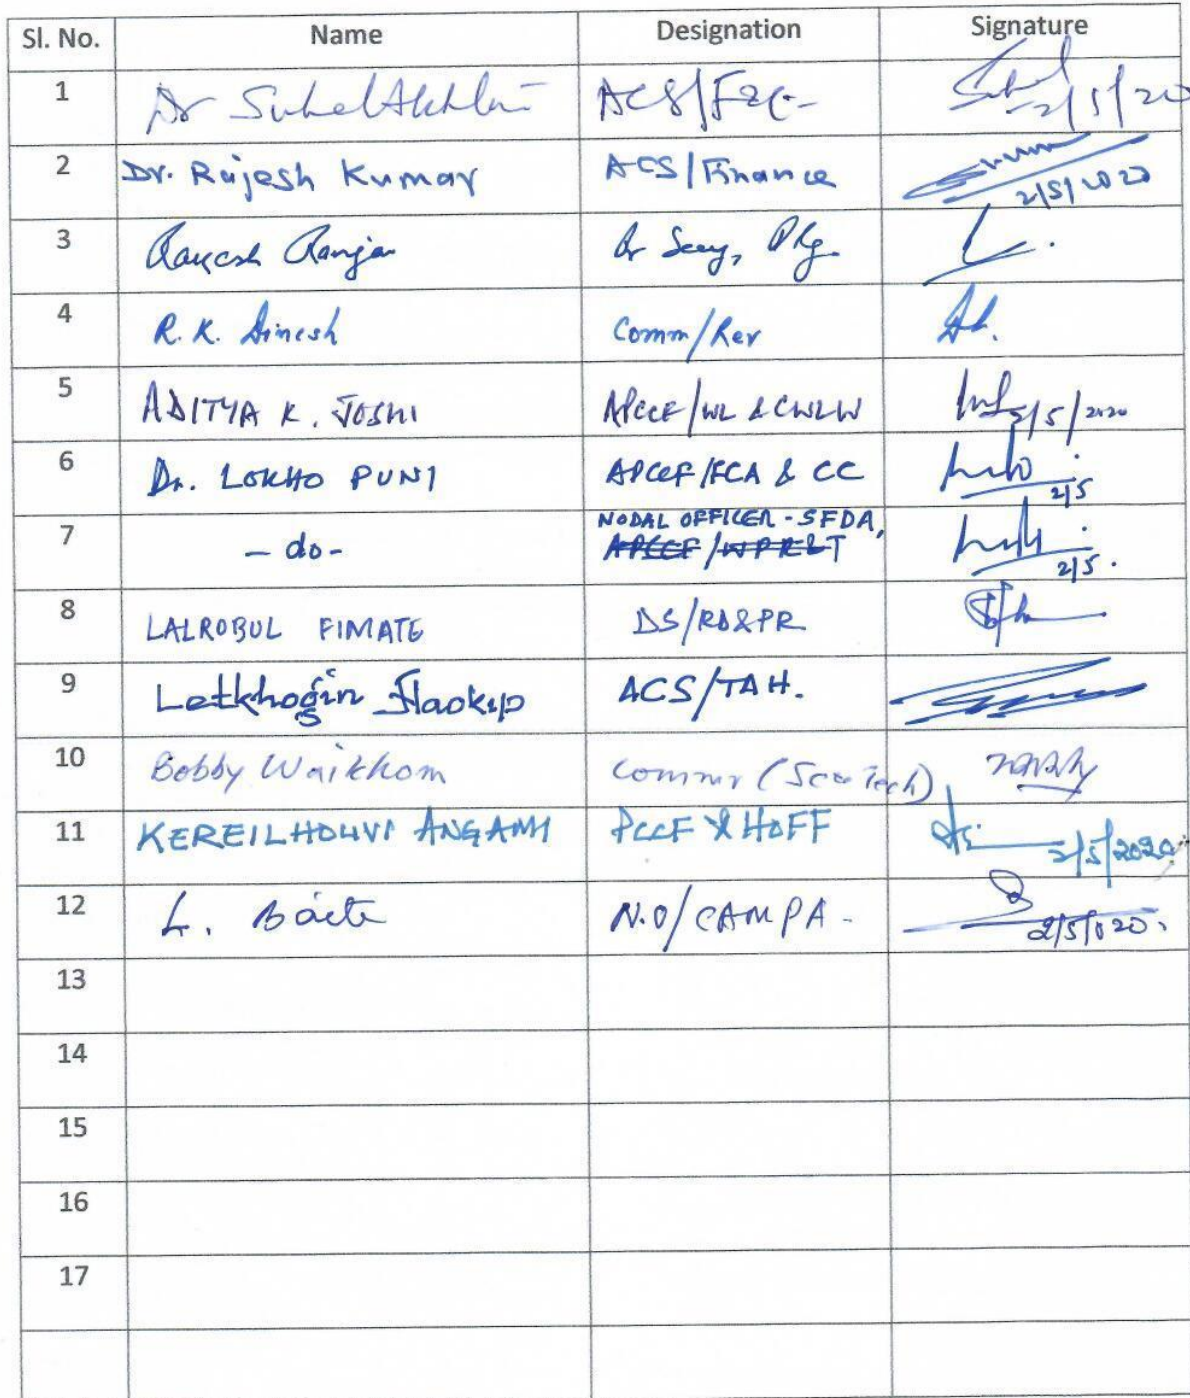 Sl. No. Name Designation Signature
1 Dr Suhel Akhtar ACS/
2/5/20
2 Dr. Rajesh Kumar ACS/Finance
2/5/2020
3 Rakesh Ranjan Plg.
4 R.K. Dinesh Comm/Rev
5 ADITYA K. JOSHI APCCF/WL & CWLW
2/5/2020
6 Dr. LOKHO PUNI APCCF/FCA & CC
2/5
NODAL OFFICER - SFDA,
7 - do - APCCF/WPR&T
2/5.
8 LALROBUL FIMATE DS/RD&PR
9 Letkhogin Haokip ACS/TAH.
10 Bobby Waikhom Commr (Sc & Tech)
11 KEREILHOUVI ANGAMI PCCF & HOFF
2/5/2020
12 L. Baite N.O/CAMPA -
2/5/020.
13
14
15
16
17